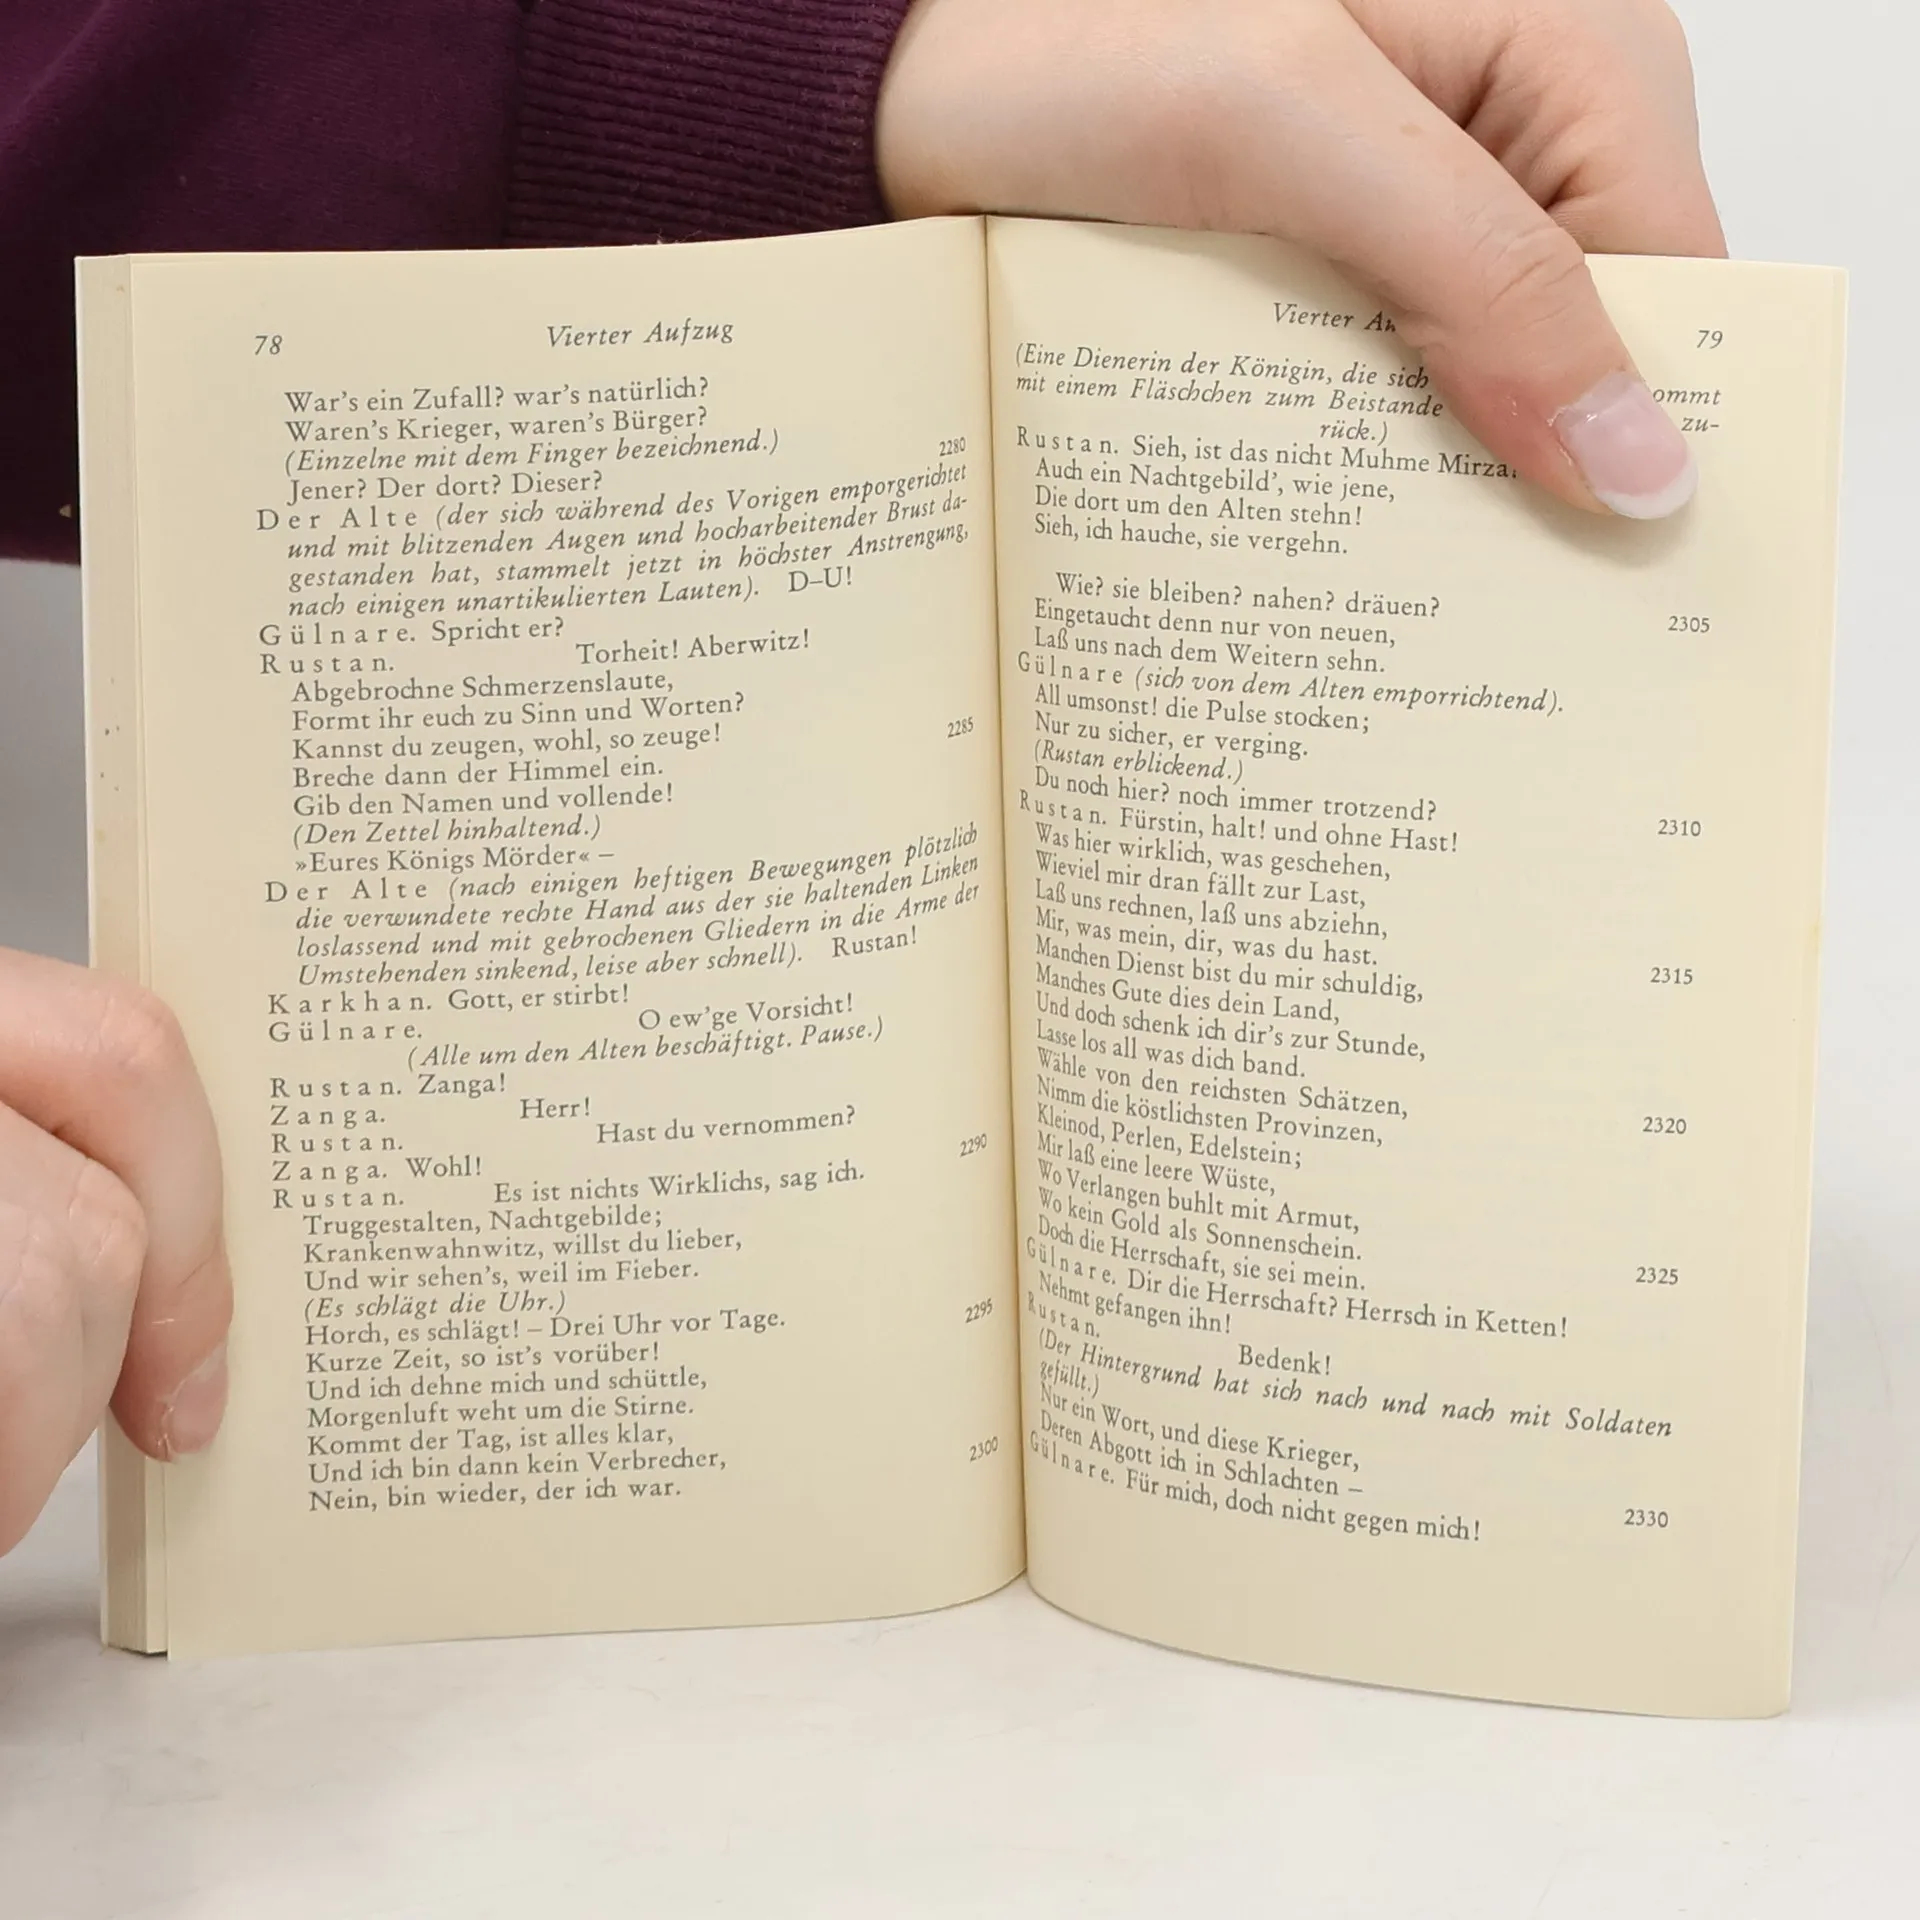 78
Vierter Aufzug
War's ein Zufall? war's natürlich?
Waren's Krieger, waren's Bürger?
(Einzelne mit dem Finger bezeichnend.)
Jener? Der dort? Dieser? 2280
Der Alte (der sich während des Vorigen emporgerichtet
und mit blitzenden Augen und hocharbeitender Brust da-
gestanden hat, stammelt jetzt in höchster Anstrengung,
nach einigen unartikulierten Lauten). D–U!
Gülnare. Spricht er?
Rustan. Torheit! Aberwitz!
Abgebrochne Schmerzenslaute,
Formt ihr euch zu Sinn und Worten?
Kannst du zeugen, wohl, so zeuge! 2285
Breche dann der Himmel ein.
Gib den Namen und vollende!
(Den Zettel hinhaltend.)
»Eures Königs Mörder« –
Der Alte (nach einigen heftigen Bewegungen plötzlich
die verwundete rechte Hand aus der sie haltenden Linken
loslassend und mit gebrochenen Gliedern in die Arme der
Umstehenden sinkend, leise aber schnell). Rustan!
Karkhan. Gott, er stirbt!
Gülnare. O ew'ge Vorsicht!
(Alle um den Alten beschäftigt. Pause.)
Rustan. Zanga!
Zanga. Herr!
Rustan. Hast du vernommen?
Zanga. Wohl! 2290
Rustan. Es ist nichts Wirklichs, sag ich.
Truggestalten, Nachtgebilde;
Krankenwahnwitz, willst du lieber,
Und wir sehen's, weil im Fieber.
(Es schlägt die Uhr.)
Horch, es schlägt! – Drei Uhr vor Tage. 2295
Kurze Zeit, so ist's vorüber!
Und ich dehne mich und schüttle,
Morgenluft weht um die Stirne.
Kommt der Tag, ist alles klar,
Und ich bin dann kein Verbrecher, 2300
Nein, bin wieder, der ich war.
Vierter
79
(Eine Dienerin der Königin, die sich
mit einem Fläschchen zum Beistande zu-
rück.)
Rustan. Sieh, ist das nicht Muhme Mirza
Auch ein Nachtgebild', wie jene,
Die dort um den Alten stehn!
Sieh, ich hauche, sie vergehn.
Wie? sie bleiben? nahen? dräuen? 2305
Eingetaucht denn nur von neuen,
Laß uns nach dem Weitern sehn.
Gülnare (sich von dem Alten emporrichtend).
All umsonst! die Pulse stocken;
Nur zu sicher, er verging.
(Rustan erblickend.)
Du noch hier? noch immer trotzend? 2310
Rustan. Fürstin, halt! und ohne Hast!
Was hier wirklich, was geschehen,
Wieviel mir dran fällt zur Last,
Laß uns rechnen, laß uns abziehn,
Mir, was mein, dir, was du hast. 2315
Manchen Dienst bist du mir schuldig,
Manches Gute dies dein Land,
Und doch schenk ich dir's zur Stunde,
Lasse los all was dich band.
Wähle von den reichsten Schätzen, 2320
Nimm die köstlichsten Provinzen,
Kleinod, Perlen, Edelstein;
Mir laß eine leere Wüste,
Wo Verlangen buhlt mit Armut,
Wo kein Gold als Sonnenschein. 2325
Doch die Herrschaft, sie sei mein.
Gülnare. Dir die Herrschaft? Herrsch in Ketten!
Nehmt gefangen ihn!
Rustan. Bedenk!
(Der Hintergrund hat sich nach und nach mit Soldaten
gefüllt.)
Nur ein Wort, und diese Krieger,
Deren Abgott ich in Schlachten –
Gülnare. Für mich, doch nicht gegen mich! 2330